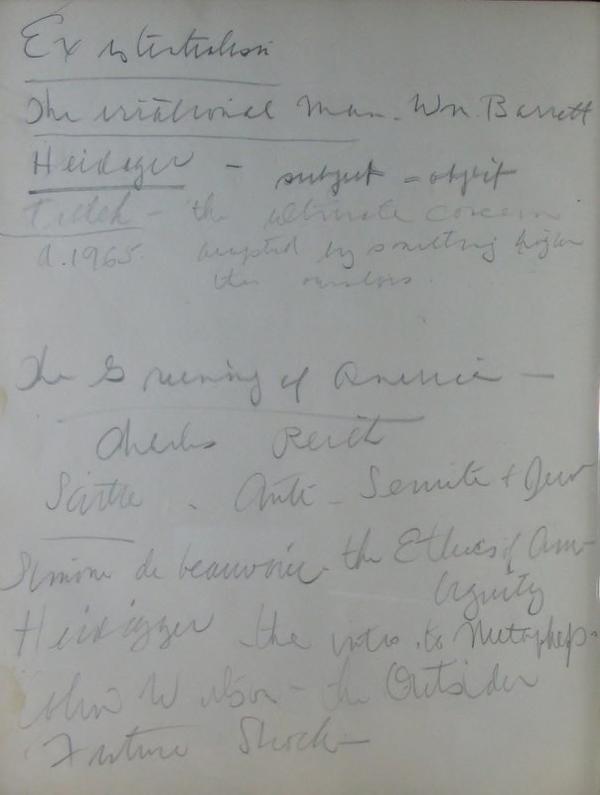 Existentialism
The irrational Man - Wm. Barrett
Heidegger - subject - object
Tillich - the ultimate concern
d. 1965. accepted by something higher
than ourselves.
The Greening of America -
Charles Reich
Sartre - Anti-Semite + Jew
Simone de beauvoir - the Ethics of Am-
biguity
Heidigger - the intro. to Metaphys.
Colin Wilson - the Outsider
Future Shock -